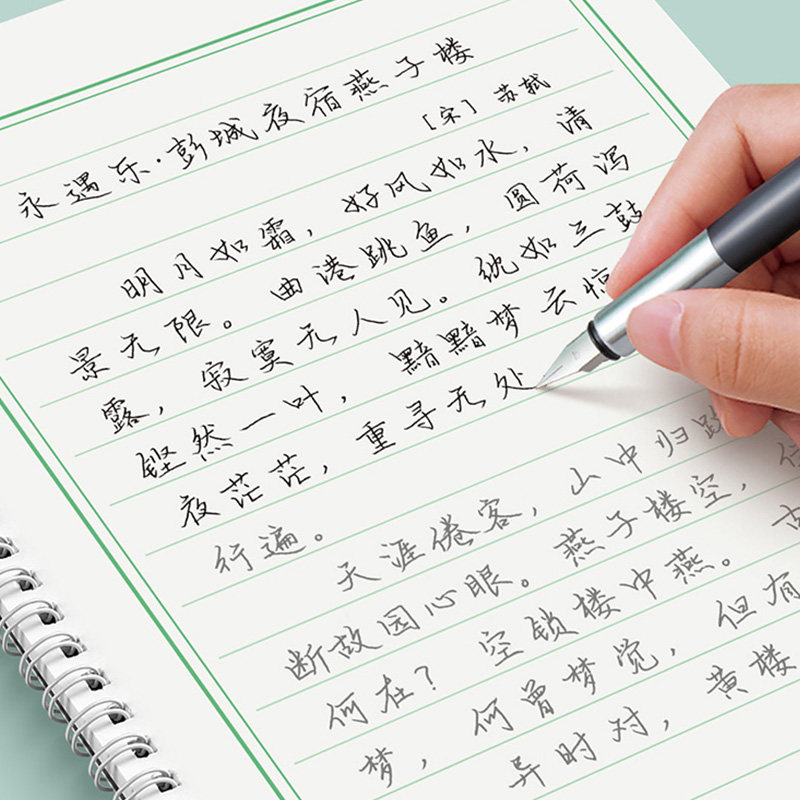 永遇乐·彭城夜宿燕子楼
[宋] 苏轼
明月如霜，好风如水，清
景无限。曲港跳鱼，圆荷泻
露，寂寞无人见。紞如三鼓
铿然一叶，黯黯梦云惊
夜茫茫，重寻无处
行遍。
天涯倦客，山中归路
断故园心眼。燕子楼空，佳
何在？空锁楼中燕。古
梦，何曾梦觉，但有
异时对，黄楼